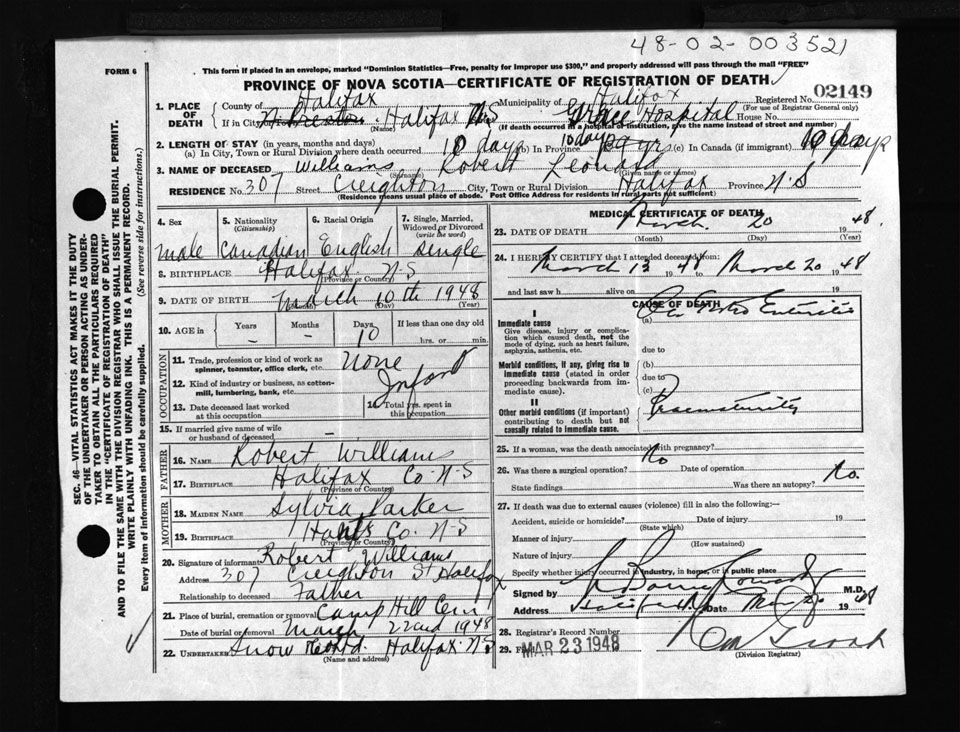 48-02-003521
FORM 6
This form if placed in an envelope, marked "Dominion Statistics—Free, penalty for improper use $300," and properly addressed will pass through the mail "FREE"
PROVINCE OF NOVA SCOTIA—CERTIFICATE OF REGISTRATION OF DEATH
1. PLACE OF DEATH County of Halifax Municipality of Halifax Registered No. 02149
(For use of Registrar General only)
If in City, Town Halifax Grace Hospital House No.
(Name) (If death occurred in a hospital or institution, give the name instead of street and number)
2. LENGTH OF STAY (in years, months and days)
(a) In City, Town or Rural Division where death occurred 10 days (b) In Province 10 days (c) In Canada (if immigrant) 10 days
3. NAME OF DECEASED Williams Robert Leonard
(Surname) (Given name or names)
RESIDENCE No. 307 Street Creighton City, Town or Rural Division Halifax Province N.S
(Residence means usual place of abode. Post Office Address for residents in rural parts not sufficient)
4. Sex 5. Nationality (Citizenship) 6. Racial Origin 7. Single, Married, Widowed or Divorced (write the word)
male Canadian English single
8. BIRTHPLACE Halifax N-S
(Province or Country)
9. DATE OF BIRTH March 10th 1948
(Month) (Day) (Year)
10. AGE in Years Months Days If less than one day old
- - 10 hrs. or min.
OCCUPATION
11. Trade, profession or kind of work as spinner, teamster, office clerk, etc. None
12. Kind of industry or business, as cotton-mill, lumbering, bank, etc. Infant
13. Date deceased last worked at this occupation 14. Total yrs. spent in this occupation
15. If married give name of wife or husband of deceased -
FATHER
16. NAME Robert Williams
17. BIRTHPLACE Halifax Co N-S
(Province or Country)
MOTHER
18. MAIDEN NAME Sylvia Parker
19. BIRTHPLACE Co. N-S
(Province or Country)
20. Signature of informant Robert Williams
Address 307 Creighton St Halifax
Relationship to deceased Father
21. Place of burial, cremation or removal Camp Hill Cem
Date of burial or removal March 22nd 1948
22. UNDERTAKER Snow Halifax N.S
(Name and address)
MEDICAL CERTIFICATE OF DEATH
23. DATE OF DEATH March 20 1948
(Month) (Day) (Year)
24. I HEREBY CERTIFY that I attended deceased from:
March 13 1948 to March 20 1948
and last saw h alive on 19
CAUSE OF DEATH
I
Immediate cause (a) Enteritis
Give disease, injury or complication which caused death, not the mode of dying, such as heart failure, asphyxia, asthenia, etc.
due to
Morbid conditions, if any, giving rise to immediate cause (stated in order proceeding backwards from immediate cause). (b)
due to
(c)
II
Other morbid conditions (if important) contributing to death but not causally related to immediate cause. Prematurity
25. If a woman, was the death associated with pregnancy?
26. Was there a surgical operation? No Date of operation
State findings Was there an autopsy? No.
27. If death was due to external causes (violence) fill in also the following:
Accident, suicide or homicide? Date of injury 19
(State which)
Manner of injury
(How sustained)
Nature of injury
Specify whether injury occurred in industry, in home, or in public place
Signed by M.D.
Address Date 1948
28. Registrar's Record Number
29. MAR 23 1948
(Division Registrar)
SEC. 46—VITAL STATISTICS ACT MAKES IT THE DUTY OF THE UNDERTAKER OR PERSON ACTING AS UNDERTAKER TO OBTAIN ALL THE PARTICULARS REQUIRED IN THE "CERTIFICATE OF REGISTRATION OF DEATH" AND TO FILE THE SAME WITH THE DIVISION REGISTRAR WHO SHALL ISSUE THE BURIAL PERMIT.
WRITE PLAINLY WITH UNFADING INK. THIS IS A PERMANENT RECORD.
Every item of information should be carefully supplied. (See reverse side for instructions.)